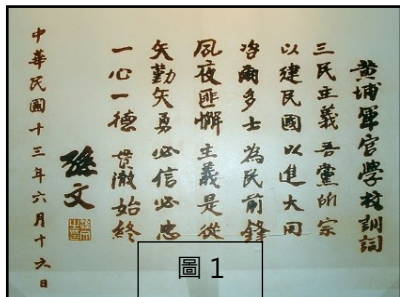 黃埔軍官學校訓詞
三民主義吾黨所宗
以建民國以進大同
咨爾多士為民前鋒
夙夜匪懈主義是從
矢勤矢勇必信必忠
一心一德貫徹始終
孫文
中華民國十三年六月十六日
圖 1